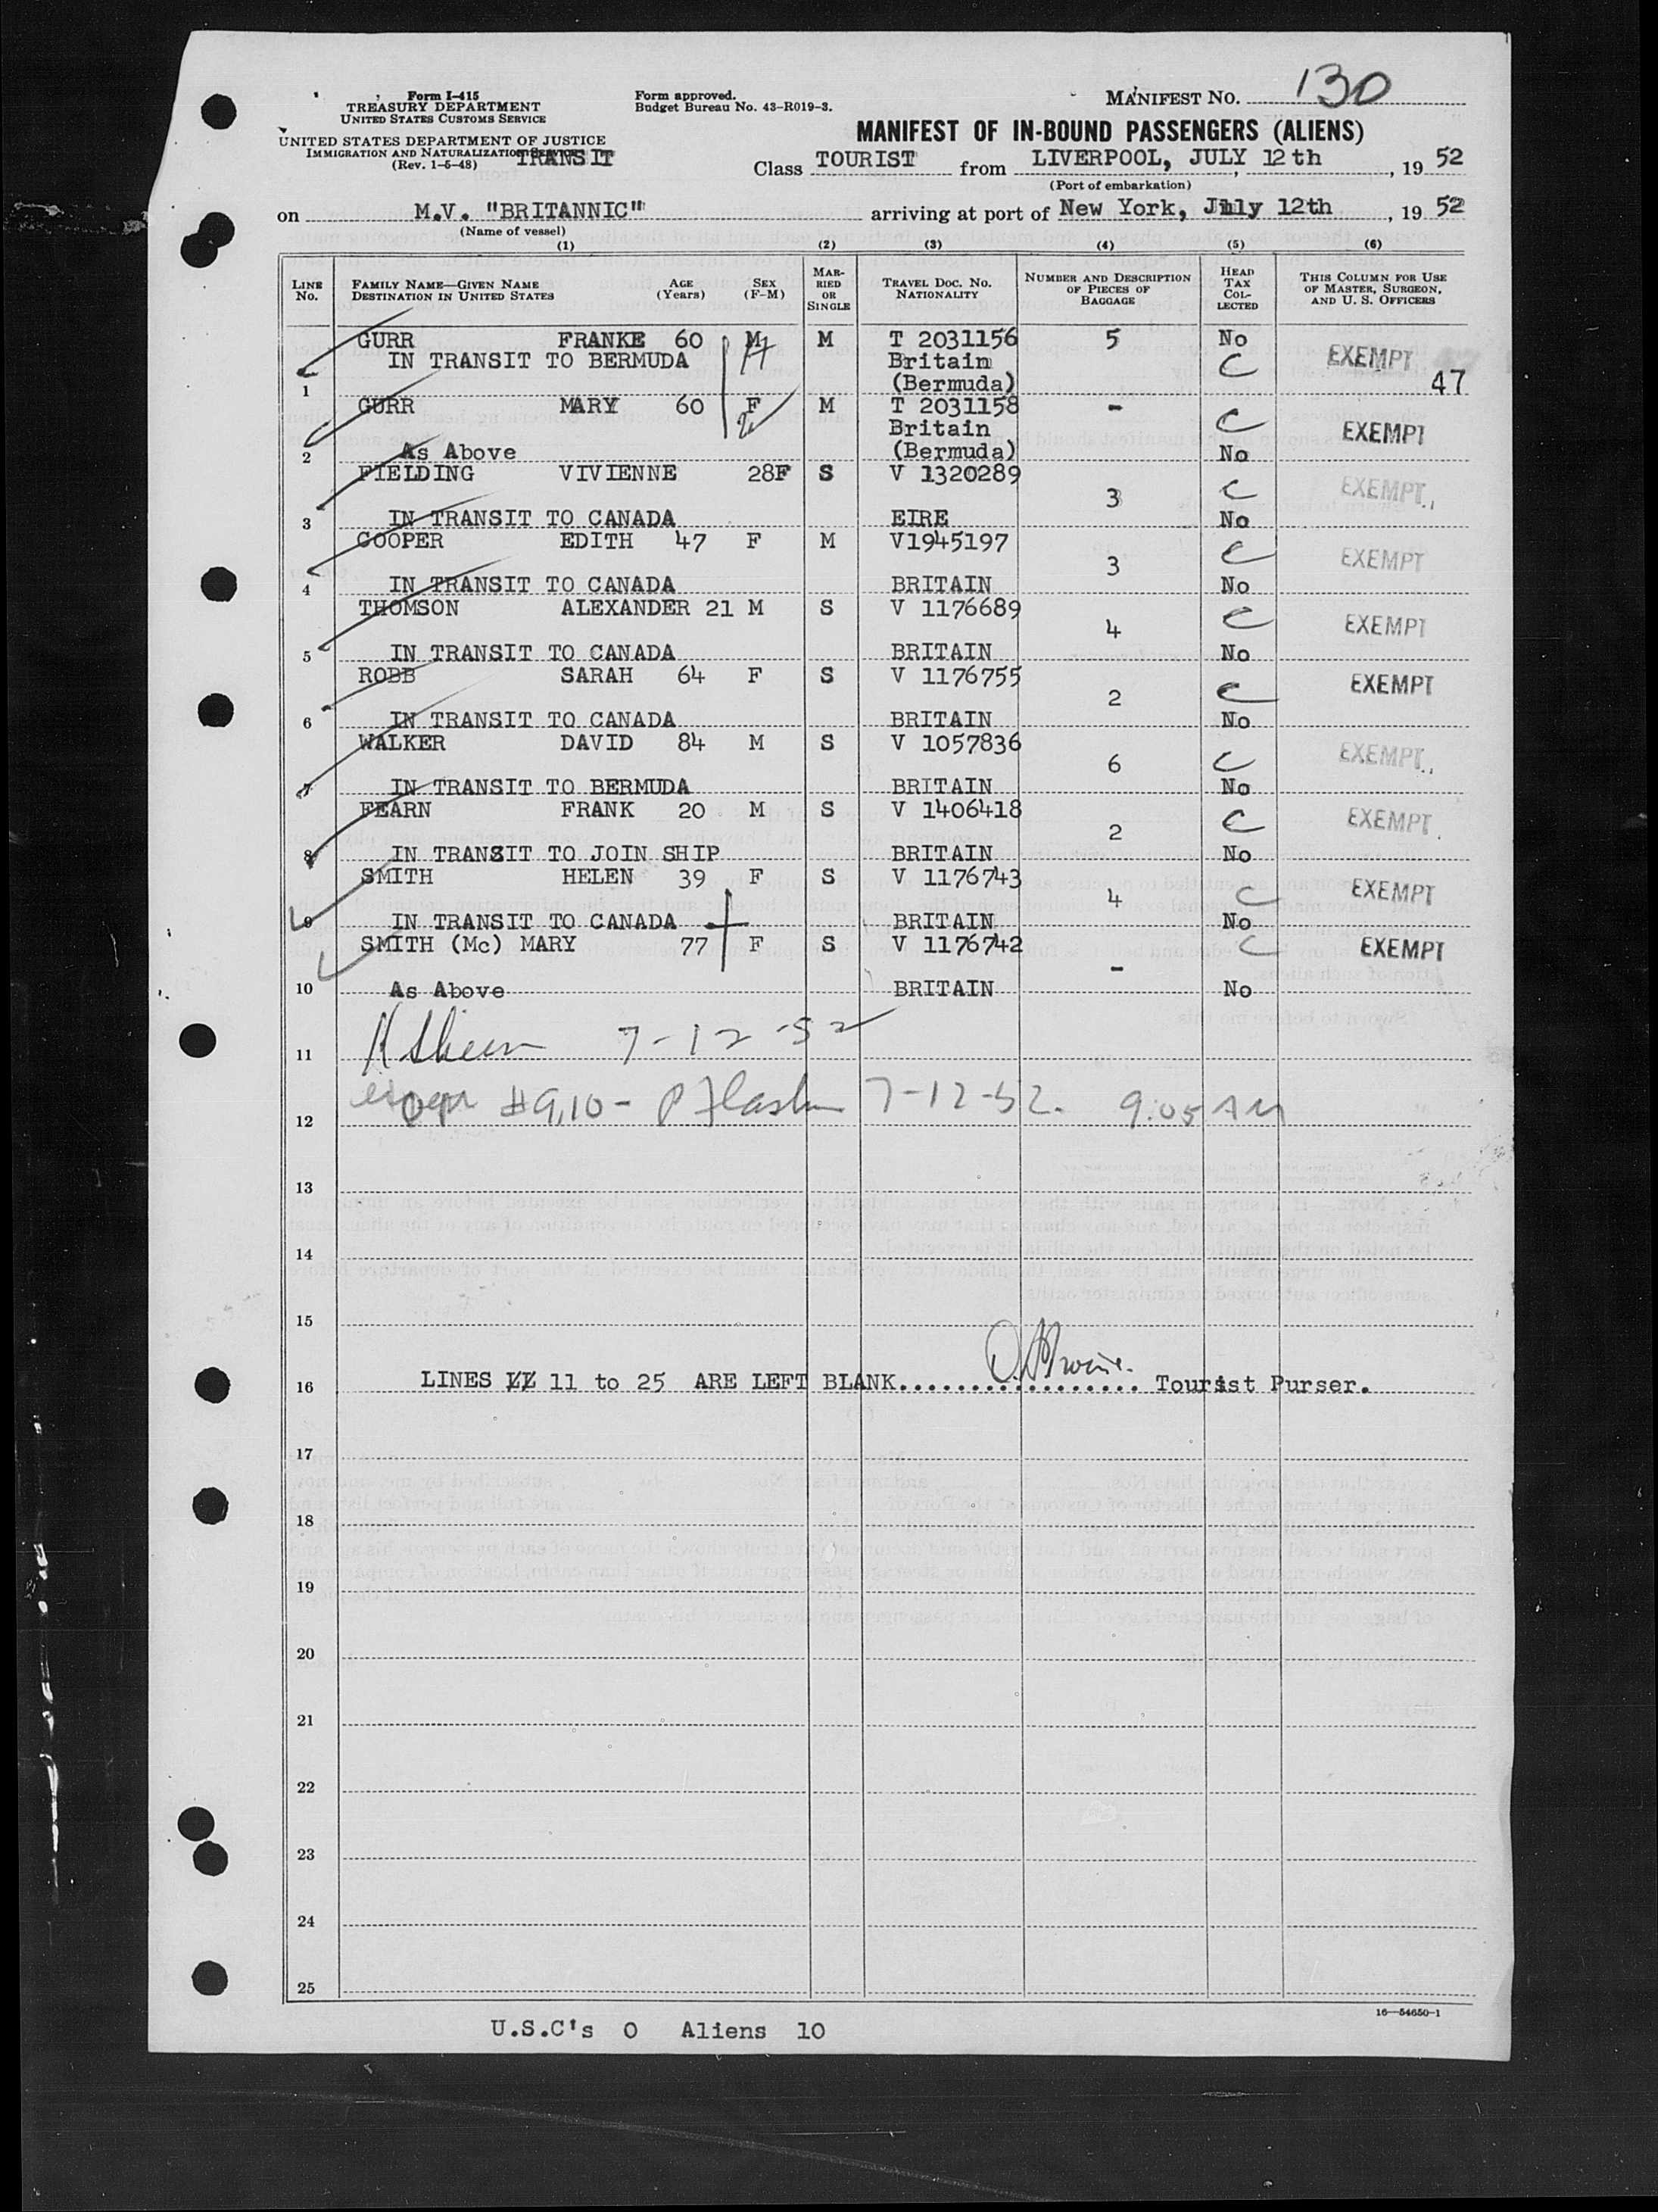 Form I-415
TREASURY DEPARTMENT
UNITED STATES CUSTOMS SERVICE
UNITED STATES DEPARTMENT OF JUSTICE
IMMIGRATION AND NATURALIZATION SERVICE
(Rev. 1-5-48) TRANSIT
Form approved.
Budget Bureau No. 43-R019-3.
MANIFEST No. 130
MANIFEST OF IN-BOUND PASSENGERS (ALIENS)
Class TOURIST from LIVERPOOL, JULY 12th, 19 52
(Port of embarkation)
on M.V. "BRITANNIC" arriving at port of New York, July 12th, 19 52
(Name of vessel)
(1) (2) (3) (4) (5) (6)
LINE No. FAMILY NAME—GIVEN NAME DESTINATION IN UNITED STATES AGE (Years) SEX (F-M) MARRIED OR SINGLE TRAVEL DOC. No. NATIONALITY NUMBER AND DESCRIPTION OF PIECES OF BAGGAGE HEAD TAX COLLECTED THIS COLUMN FOR USE OF MASTER, SURGEON, AND U. S. OFFICERS
GURR FRANKE 60 M M T 2031156 5 No
IN TRANSIT TO BERMUDA Britain C EXEMPT
1 (Bermuda) 47
GURR MARY 60 F M T 2031158 -
Britain C EXEMPT
2 As Above (Bermuda) No
FIELDING VIVIENNE 28F S V 1320289
3 C EXEMPT
3 IN TRANSIT TO CANADA EIRE No
COOPER EDITH 47 F M V1945197
3 C EXEMPT
4 IN TRANSIT TO CANADA BRITAIN No
THOMSON ALEXANDER 21 M S V 1176689
4 C EXEMPT
5 IN TRANSIT TO CANADA BRITAIN No
ROBB SARAH 64 F S V 1176755
2 C EXEMPT
6 IN TRANSIT TO CANADA BRITAIN No
WALKER DAVID 84 M S V 1057836
6 C EXEMPT
7 IN TRANSIT TO BERMUDA BRITAIN No
FEARN FRANK 20 M S V 1406418
2 C EXEMPT
8 IN TRANSIT TO JOIN SHIP BRITAIN No
SMITH HELEN 39 F S V 1176743
4 C EXEMPT
9 IN TRANSIT TO CANADA BRITAIN No
SMITH (Mc) MARY 77 F S V 1176742 C EXEMPT
-
10 As Above BRITAIN No
11 7-12-52
12 #9,10- 7-12-52. 9:05 AM
13
14
15
16 LINES 11 to 25 ARE LEFT BLANK.................. Tourist Purser.
17
18
19
20
21
22
23
24
25
16—54650-1
U.S.C's 0 Aliens 10